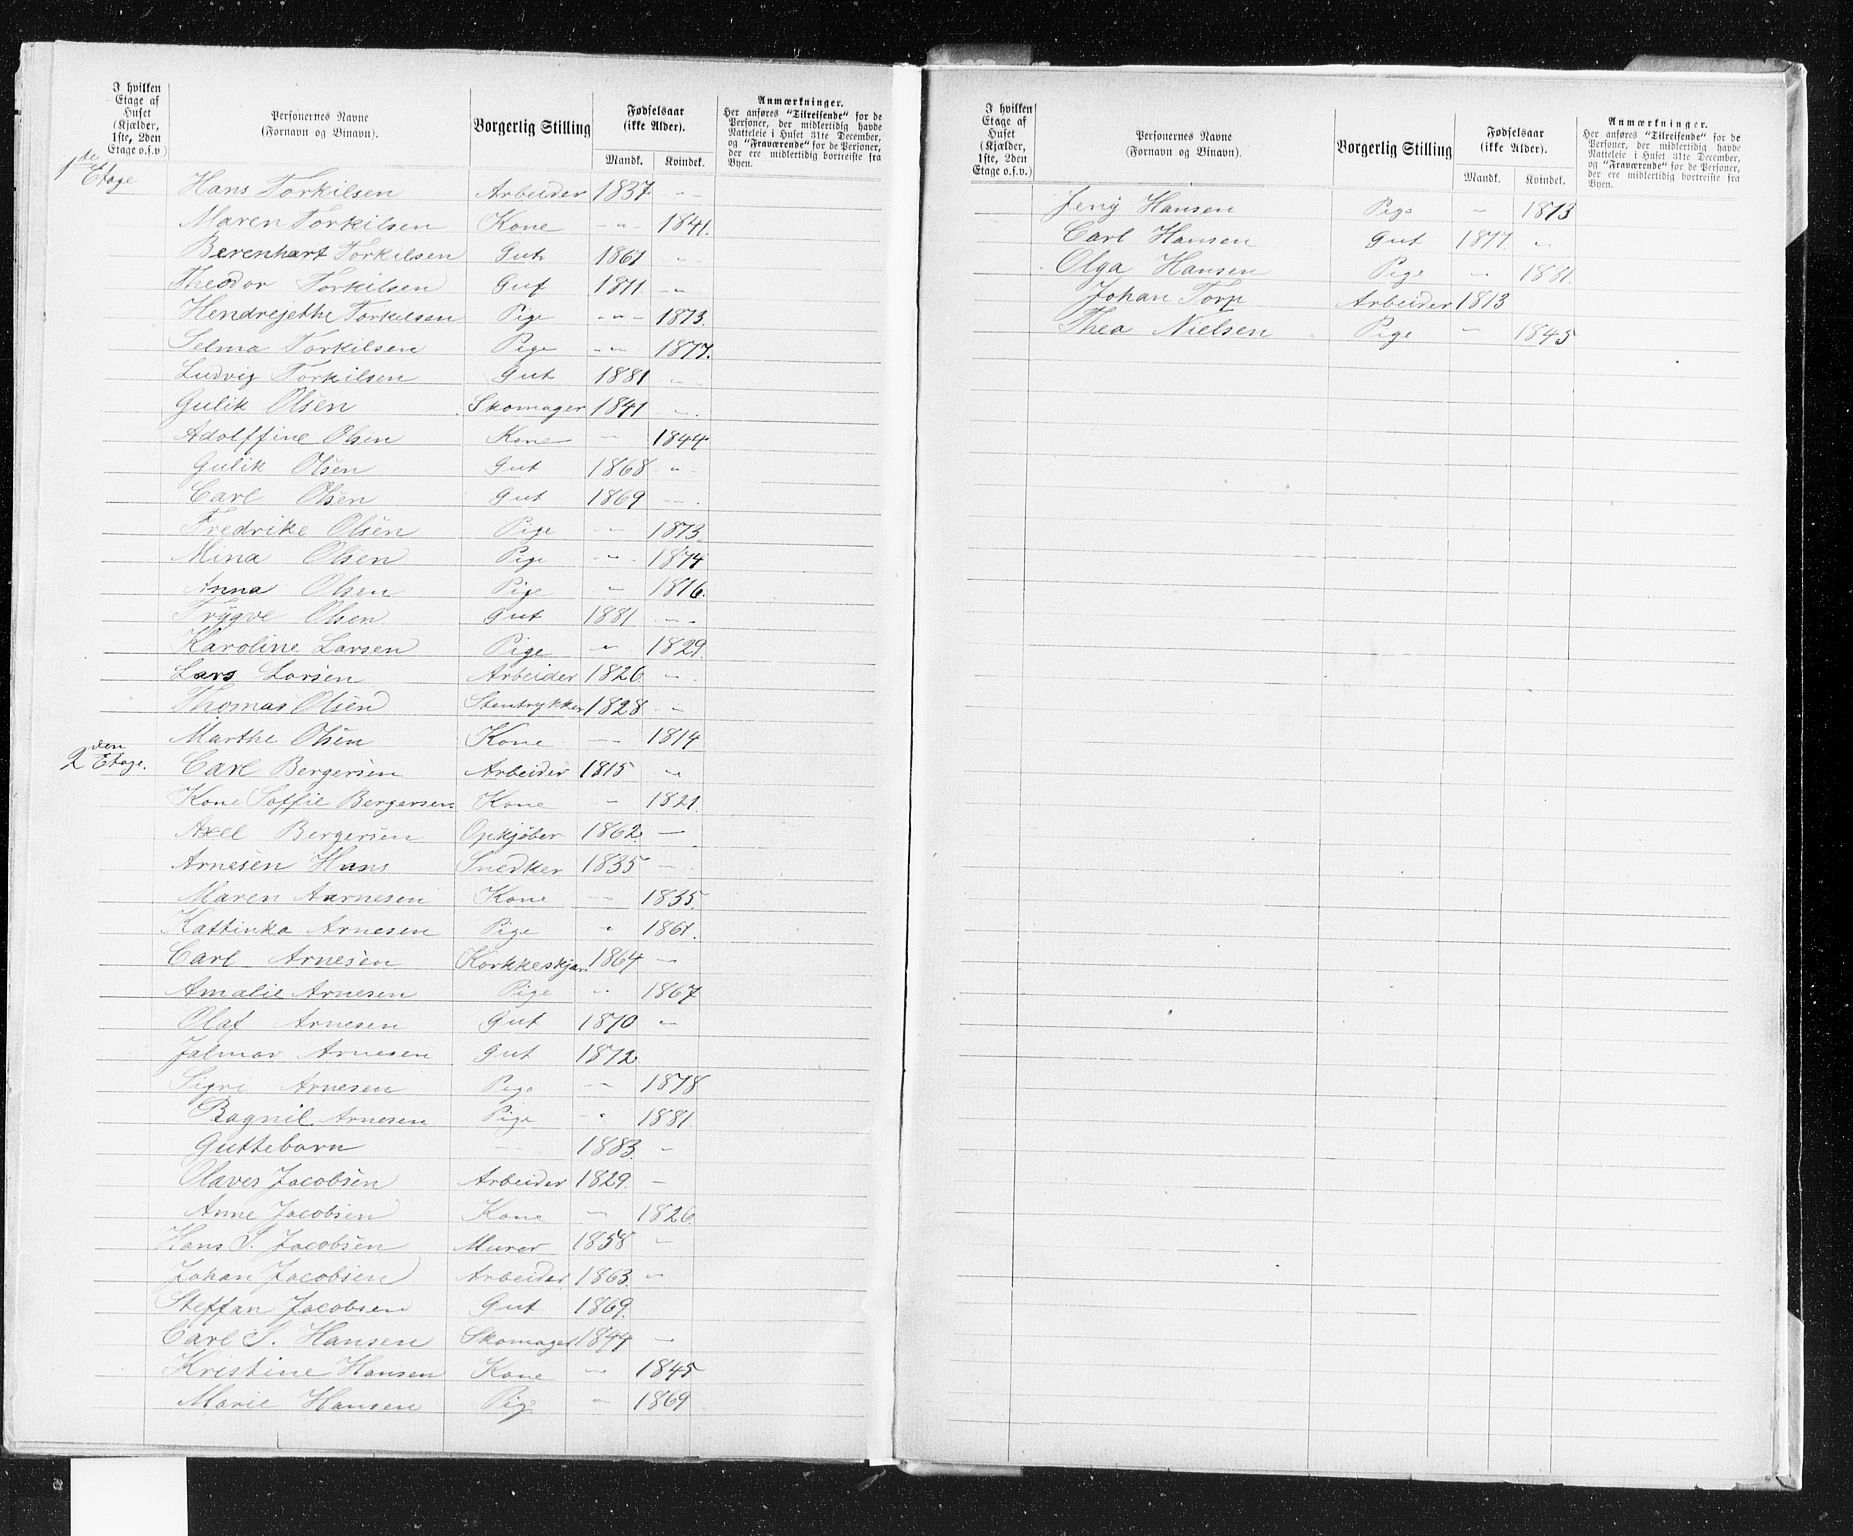 I hvilken Etage af Huset (Kjælder, 1ste, 2den Etage o.s.v.) | Personernes Navne (Fornavn og Binavn). | Borgerlig Stilling | Fødselsaar (ikke Alder). Mandk. Kvindek. | Anmærkninger. Her anføres "Tilreisende" for de Personer, der midlertidig havde Natteleie i Huset 31te December, og "Fraværende" for de Personer, der ere midlertidig bortreiste fra Byen.
1de Etage Hans Torkilsen Arbeider 1837 -"-
Maren Torkilsen Kone -"- 1841.
Berenhart Torkilsen Gut 1861 -"-
Theodor Torkilsen Gut 1871. -"-
Hendrejethe Torkilsen Pige -"- 1873.
Selma Torkilsen Pige -"- 1877.
Ludvig Torkilsen Gut 1881 -"-
Gulik Olsen Skomager 1841 -"-
Adolffine Olsen Kone -"- 1844
Gulik Olsen Gut 1868 "
Carl Olsen Gut 1869 -"-
Fredrike Olsen Pige -"- 1873.
Mina Olsen Pige -"- 1874
Anna Olsen Pige " 1876.
Trygve Olsen Gut 1881 -"-
Karoline Larsen Pige " 1829.
Lars Larsen Arbeider 1826 -"-
Thomas Olsen Stentrykker 1828 -"-
Marthe Olsen Kone -"- 1814
2den Etage. Carl Bergersen Arbeider 1815 -"-
Kone Soffie Bergersen Kone -"- 1821.
Axel Bergersen Opkjøber 1862 —
Arnesen Hans Snedker 1835 -"-
Maren Aarnesen Kone -"- 1835.
Kattinka Arnesen Pige " 1861.
Carl Arnesen Korkkeskjær 1864 -"-
Amalie Arnesen Pige " 1867
Olaf Arnesen Gut 1870 -"-
Jalmar Arnesen Gut 1872.
Sigri Arnesen Pige -"- 1878
Ragnil Arnesen Pige -"- 1881.
Guttebarn 1883. -"-
Olaves Jacobsen Arbeider 1829. —
Anne Jacobsen Kone -"- 1826.
Hans S. Jacobsen Murer 1858 "
Johan Jacobsen Arbeider 1863. -"-
Steffan Jacobsen Gut 1869.
Carl S. Hansen Skomager 1844 -"-
Kristine Hansen Kone -"- 1845
Marie Hansen Pige " 1869
I hvilken Etage af Huset (Kjælder, 1ste, 2den Etage o.s.v.) | Personernes Navne (Fornavn og Binavn). | Borgerlig Stilling | Fødselsaar (ikke Alder). Mandk. Kvindek. | Anmærkninger. Her anføres "Tilreisende" for de Personer, der midlertidig havde Natteleie i Huset 31te December, og "Fraværende" for de Personer, der ere midlertidig bortreiste fra Byen.
Jeny Hansen Pige -"- 1873
Carl Hansen Gut 1877. "
Olga Hansen Pige " 1881.
Johan Torp Arbeider 1813
Thea Nielsen Pige -"- 1845